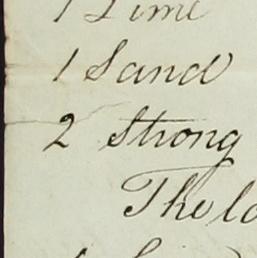 1 Lime
1 Sand
2 Strong
The lo